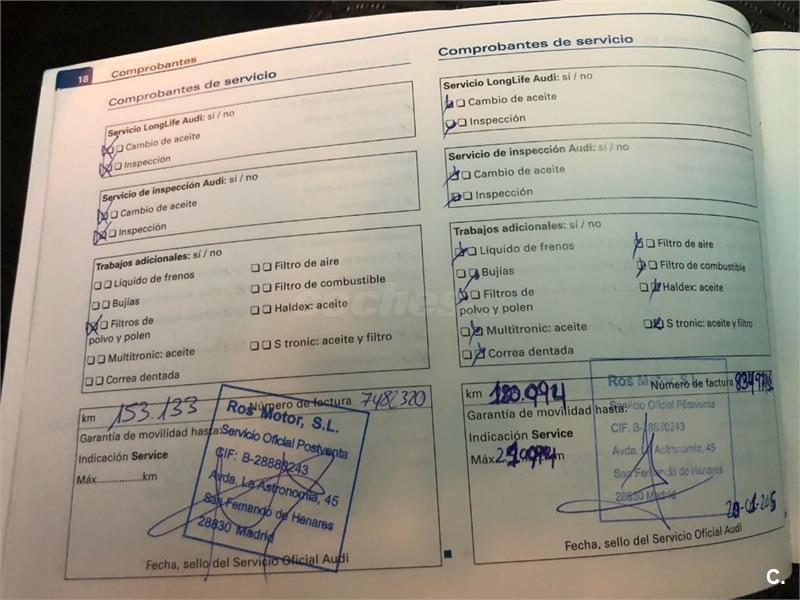 18 Comprobantes
Comprobantes de servicio
Servicio LongLife Audi: sí / no
Cambio de aceite
Inspección
Servicio de inspección Audi: sí / no
Cambio de aceite
Inspección
Trabajos adicionales: sí / no
Líquido de frenos
Bujías
Filtros de
polvo y polen
Multitronic: aceite
Correa dentada
Filtro de aire
Filtro de combustible
Haldex: aceite
S tronic: aceite y filtro
km 153.133
Número de factura 7482320
Garantía de movilidad hasta:
Indicación Service
Máx................km
Ros Motor, S.L.
Servicio Oficial Postventa
CIF: B-28880243
Avda. La Astronomía, 45
San Fernando de Henares
28830 Madrid
Fecha, sello del Servicio Oficial Audi
Comprobantes de servicio
Servicio LongLife Audi: sí / no
Cambio de aceite
Inspección
Servicio de inspección Audi: sí / no
Cambio de aceite
Inspección
Trabajos adicionales: sí / no
Líquido de frenos
Bujías
Filtros de
polvo y polen
Multitronic: aceite
Correa dentada
Filtro de aire
Filtro de combustible
Haldex: aceite
S tronic: aceite y filtro
km 180.994
Número de factura
Garantía de movilidad hasta:
Indicación Service
Máx. km
Ros Motor, S.L.
Servicio Oficial Postventa
CIF: B-28880243
Avda. La Astronomía, 45
San Fernando de Henares
28830 Madrid
Fecha, sello del Servicio Oficial Audi
C.